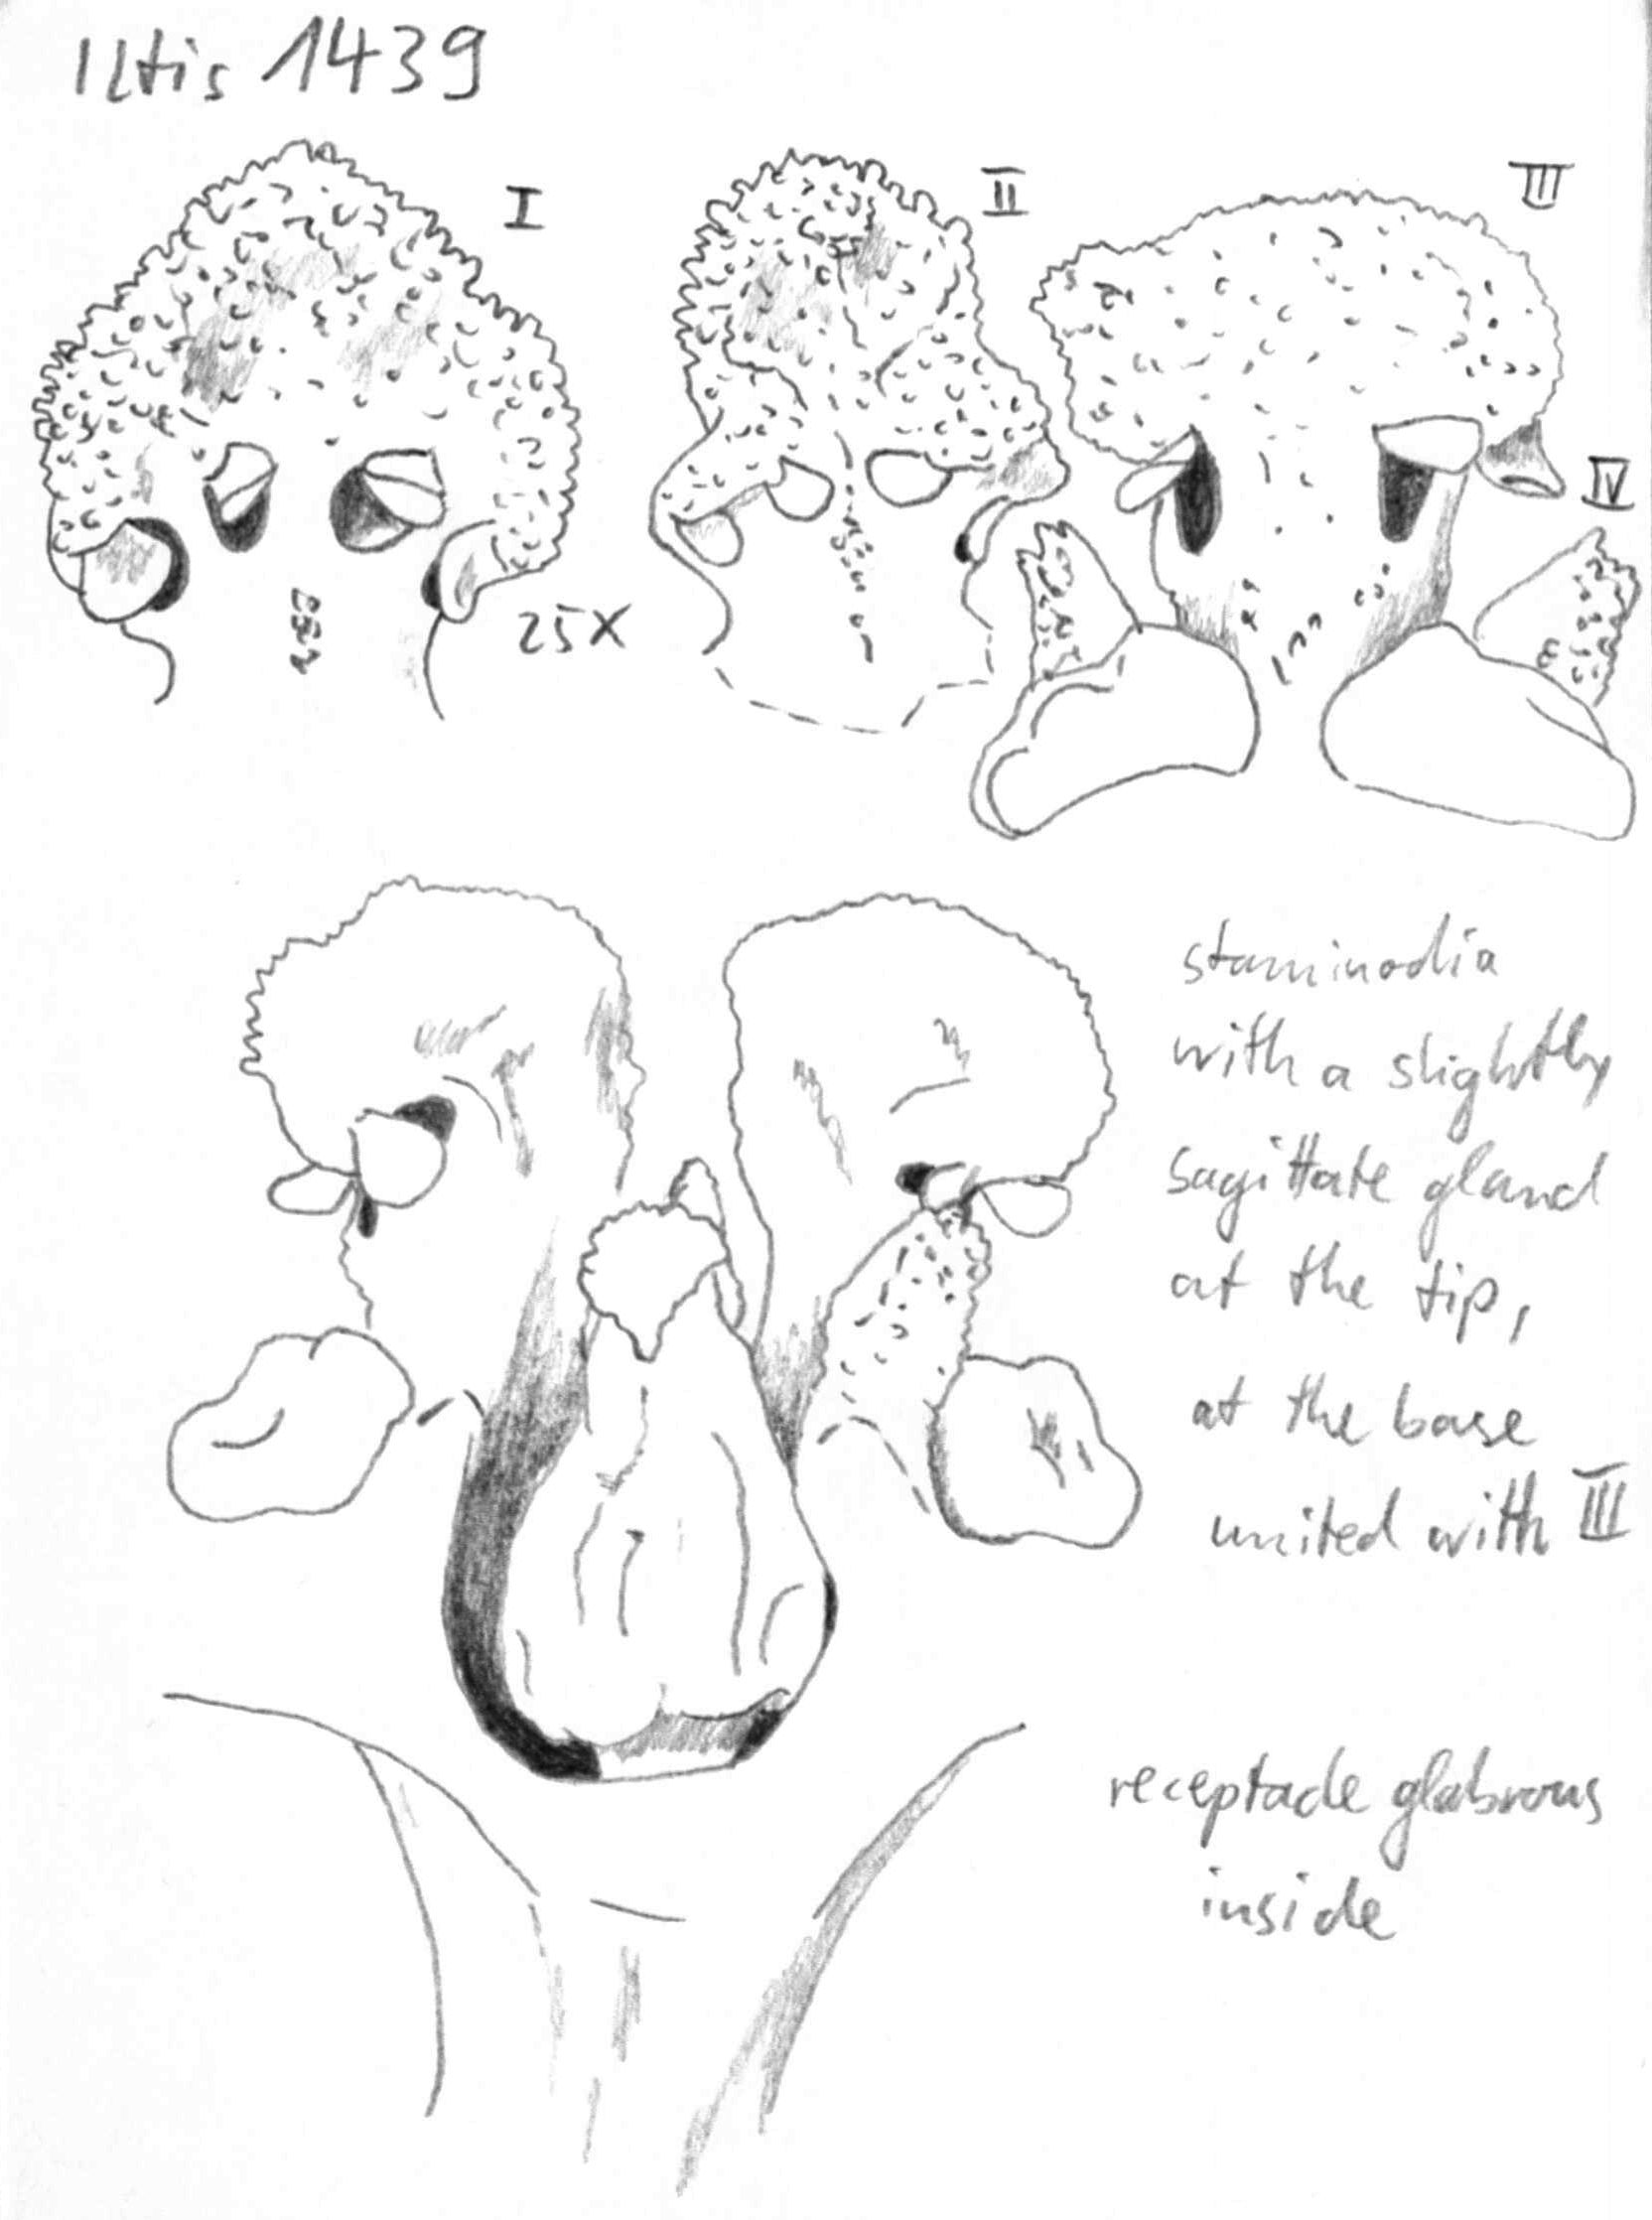 Iltis 1439
I
II
III
IV
25X
staminodia
with a slightly
sagittate gland
at the tip,
at the base
united with III
receptacle glabrous
inside